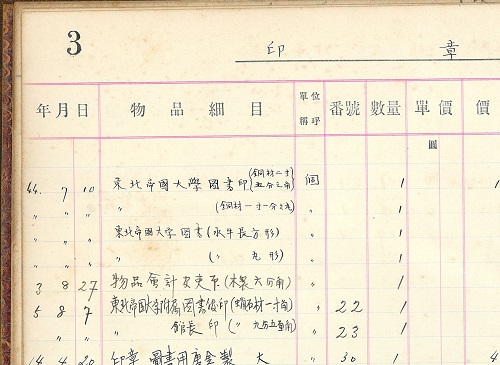 3
印 章
年月日 物品細目 單位稱呼 番號 數量 單價 價
圓
44. 7 10 東北帝國大學圖書印(銅材二寸五分之角) 個 1
〃 〃 〃 〃 (銅材一寸一分之丸) 〃 1
〃 〃 〃 東北帝國大学図書(水牛長方形) 〃 1
〃 〃 〃 〃 (〃 丸形) 〃 1
3 8 27 物品會計官吏 (木製六分角) 〃 1
5 8 7 東北帝國大学附属図書館印 一寸角) 〃 22 1
〃 〃 館長印(〃 角) 〃 23 1
14 4 20 印章 圖書用 製 大 〃 30 1 4